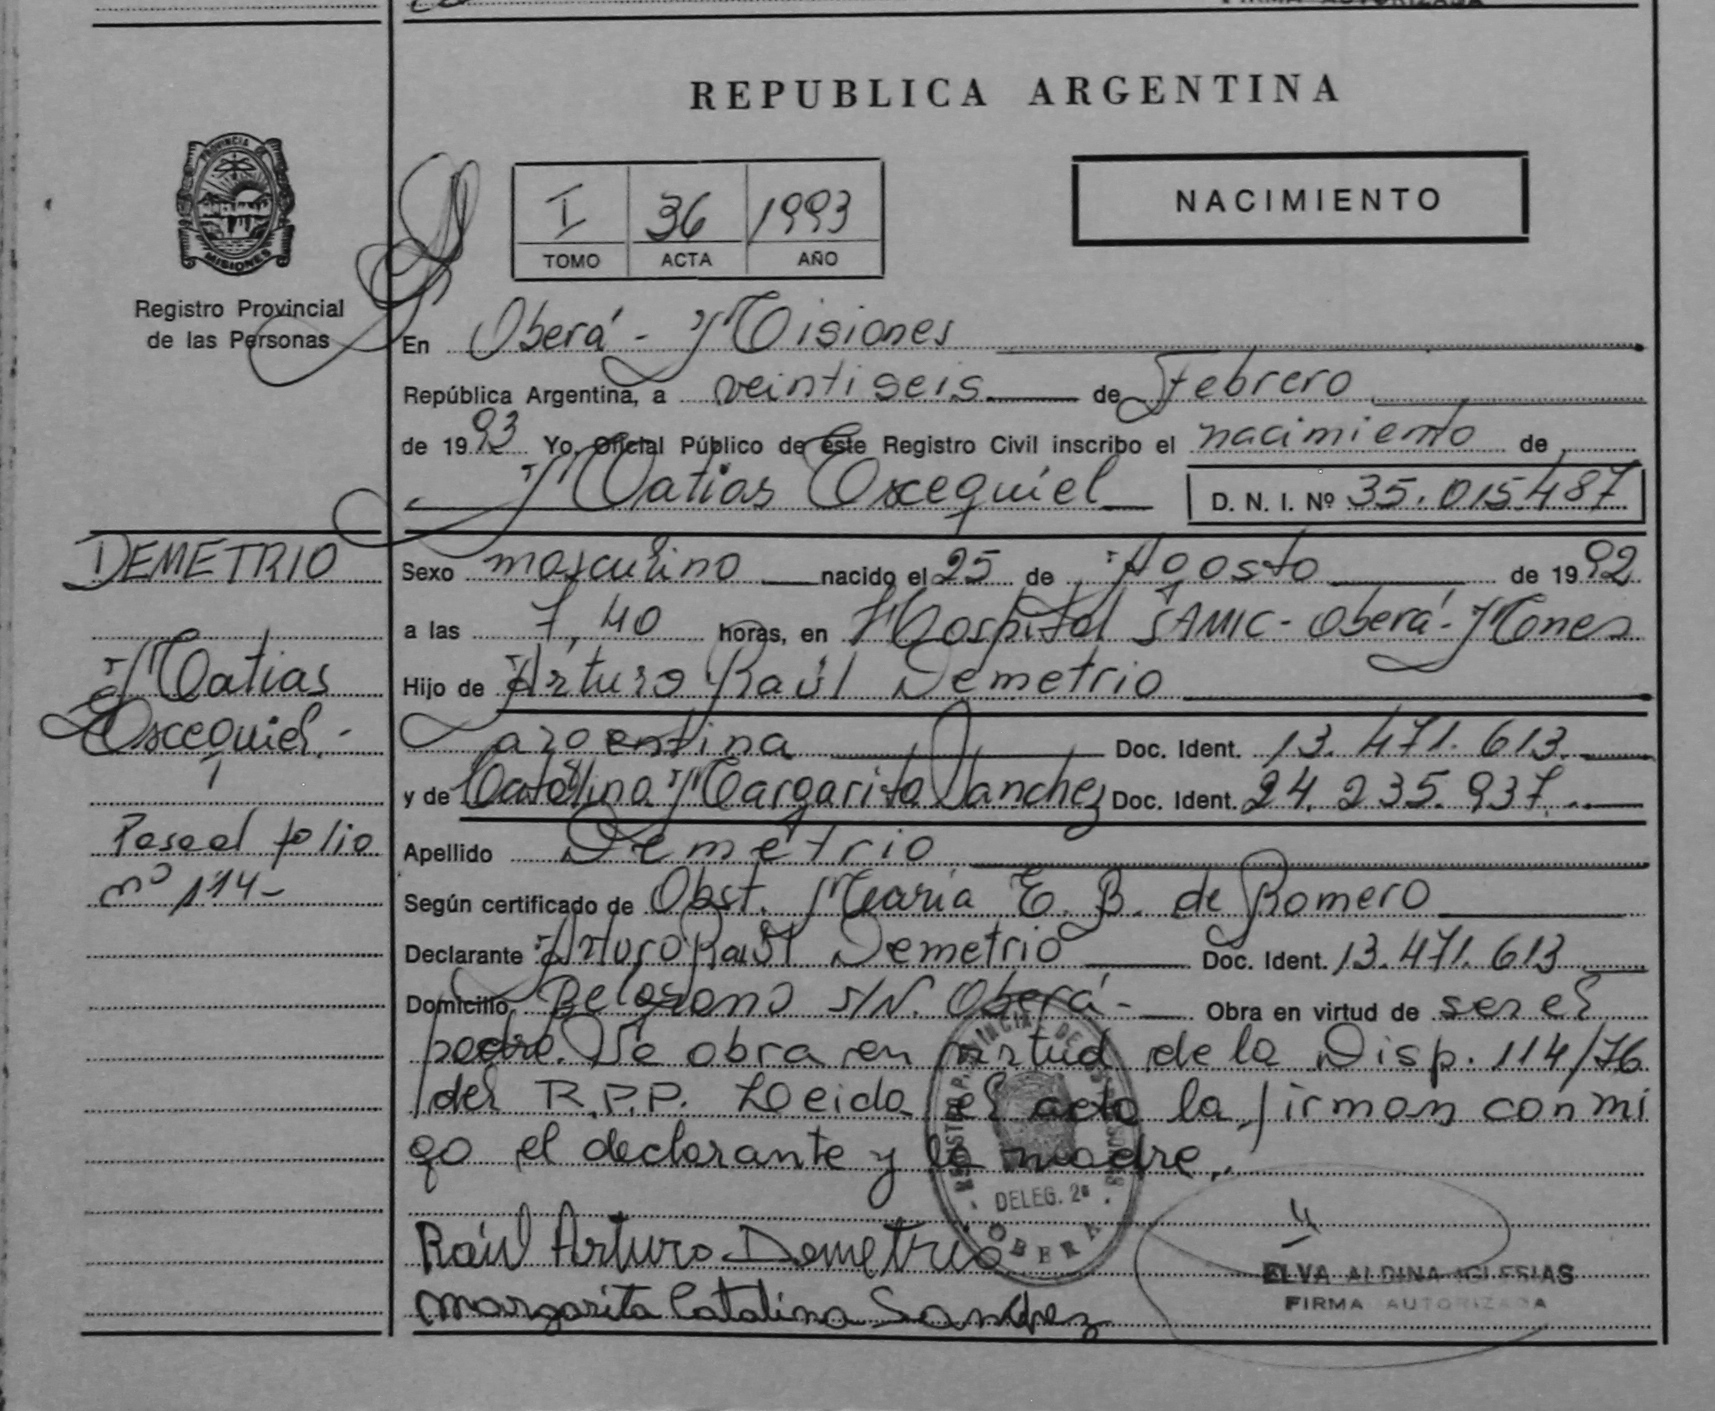 REPUBLICA ARGENTINA
PROVINCIA DE
MISIONES
Registro Provincial
de las Personas
I 36 1993
TOMO ACTA AÑO
NACIMIENTO
En Oberá - Misiones
República Argentina, a veintiseis de Febrero
de 1993 Yo, Oficial Público de este Registro Civil inscribo el nacimiento de
Matias Excequiel D. N. I. Nº 35.015.487
DEMETRIO
Matias
Excequiel.-
Pasa al folio
nº 114-
Sexo masculino nacido el 25 de Agosto de 1992
a las 7,40 horas, en Hospital SAMIC - Oberá - Mones
Hijo de Arturo Raúl Demetrio
argentina Doc. Ident. 13.471.613
y de Catalina Margarita Sanchez Doc. Ident. 24.235.937.
Apellido Demetrio
Según certificado de Obst. Maria E. B. de Romero
Declarante Arturo Raúl Demetrio Doc. Ident. 13.471.613
Domicilio Belgrano S/N. Oberá - Obra en virtud de ser el
padre. Se obra en virtud de la Disp. 114/76
del R.P.P. Leida el acta la firman conmi
go el declarante y la madre.
DELEG. 2ª
OBERA
Raúl Arturo Demetrio
Margarita Catalina Sanchez
ELVA ALDINA IGLESIAS
FIRMA AUTORIZADA